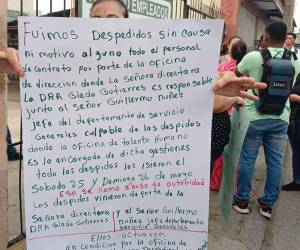 EMPLEADOS
Fuimos Despedidos sin causa
ni motivo alguno todo el personal
de contrato por parte de la oficina
de direccion donde La Señora directora
La DRA Gleda Gutierres es responsable
junto al Señor Guillermo nuñez
jefe del departamento de servicio
Generales culpable de los despidos
donde la oficina de talento Humano
es la encargada de dicha gestiones
todo los despidos los isieron el
Sabado 25 y Domingo 26 de mayo
Eso se llama abuso de autoridad
Los despidos vinieron de porte de la
Señora directora y el Señor Guillermo
DRA Gleda nuñez jefe departamento
Gutierres servicio Generales
Ellos actuaron
en condicion por la oficina de